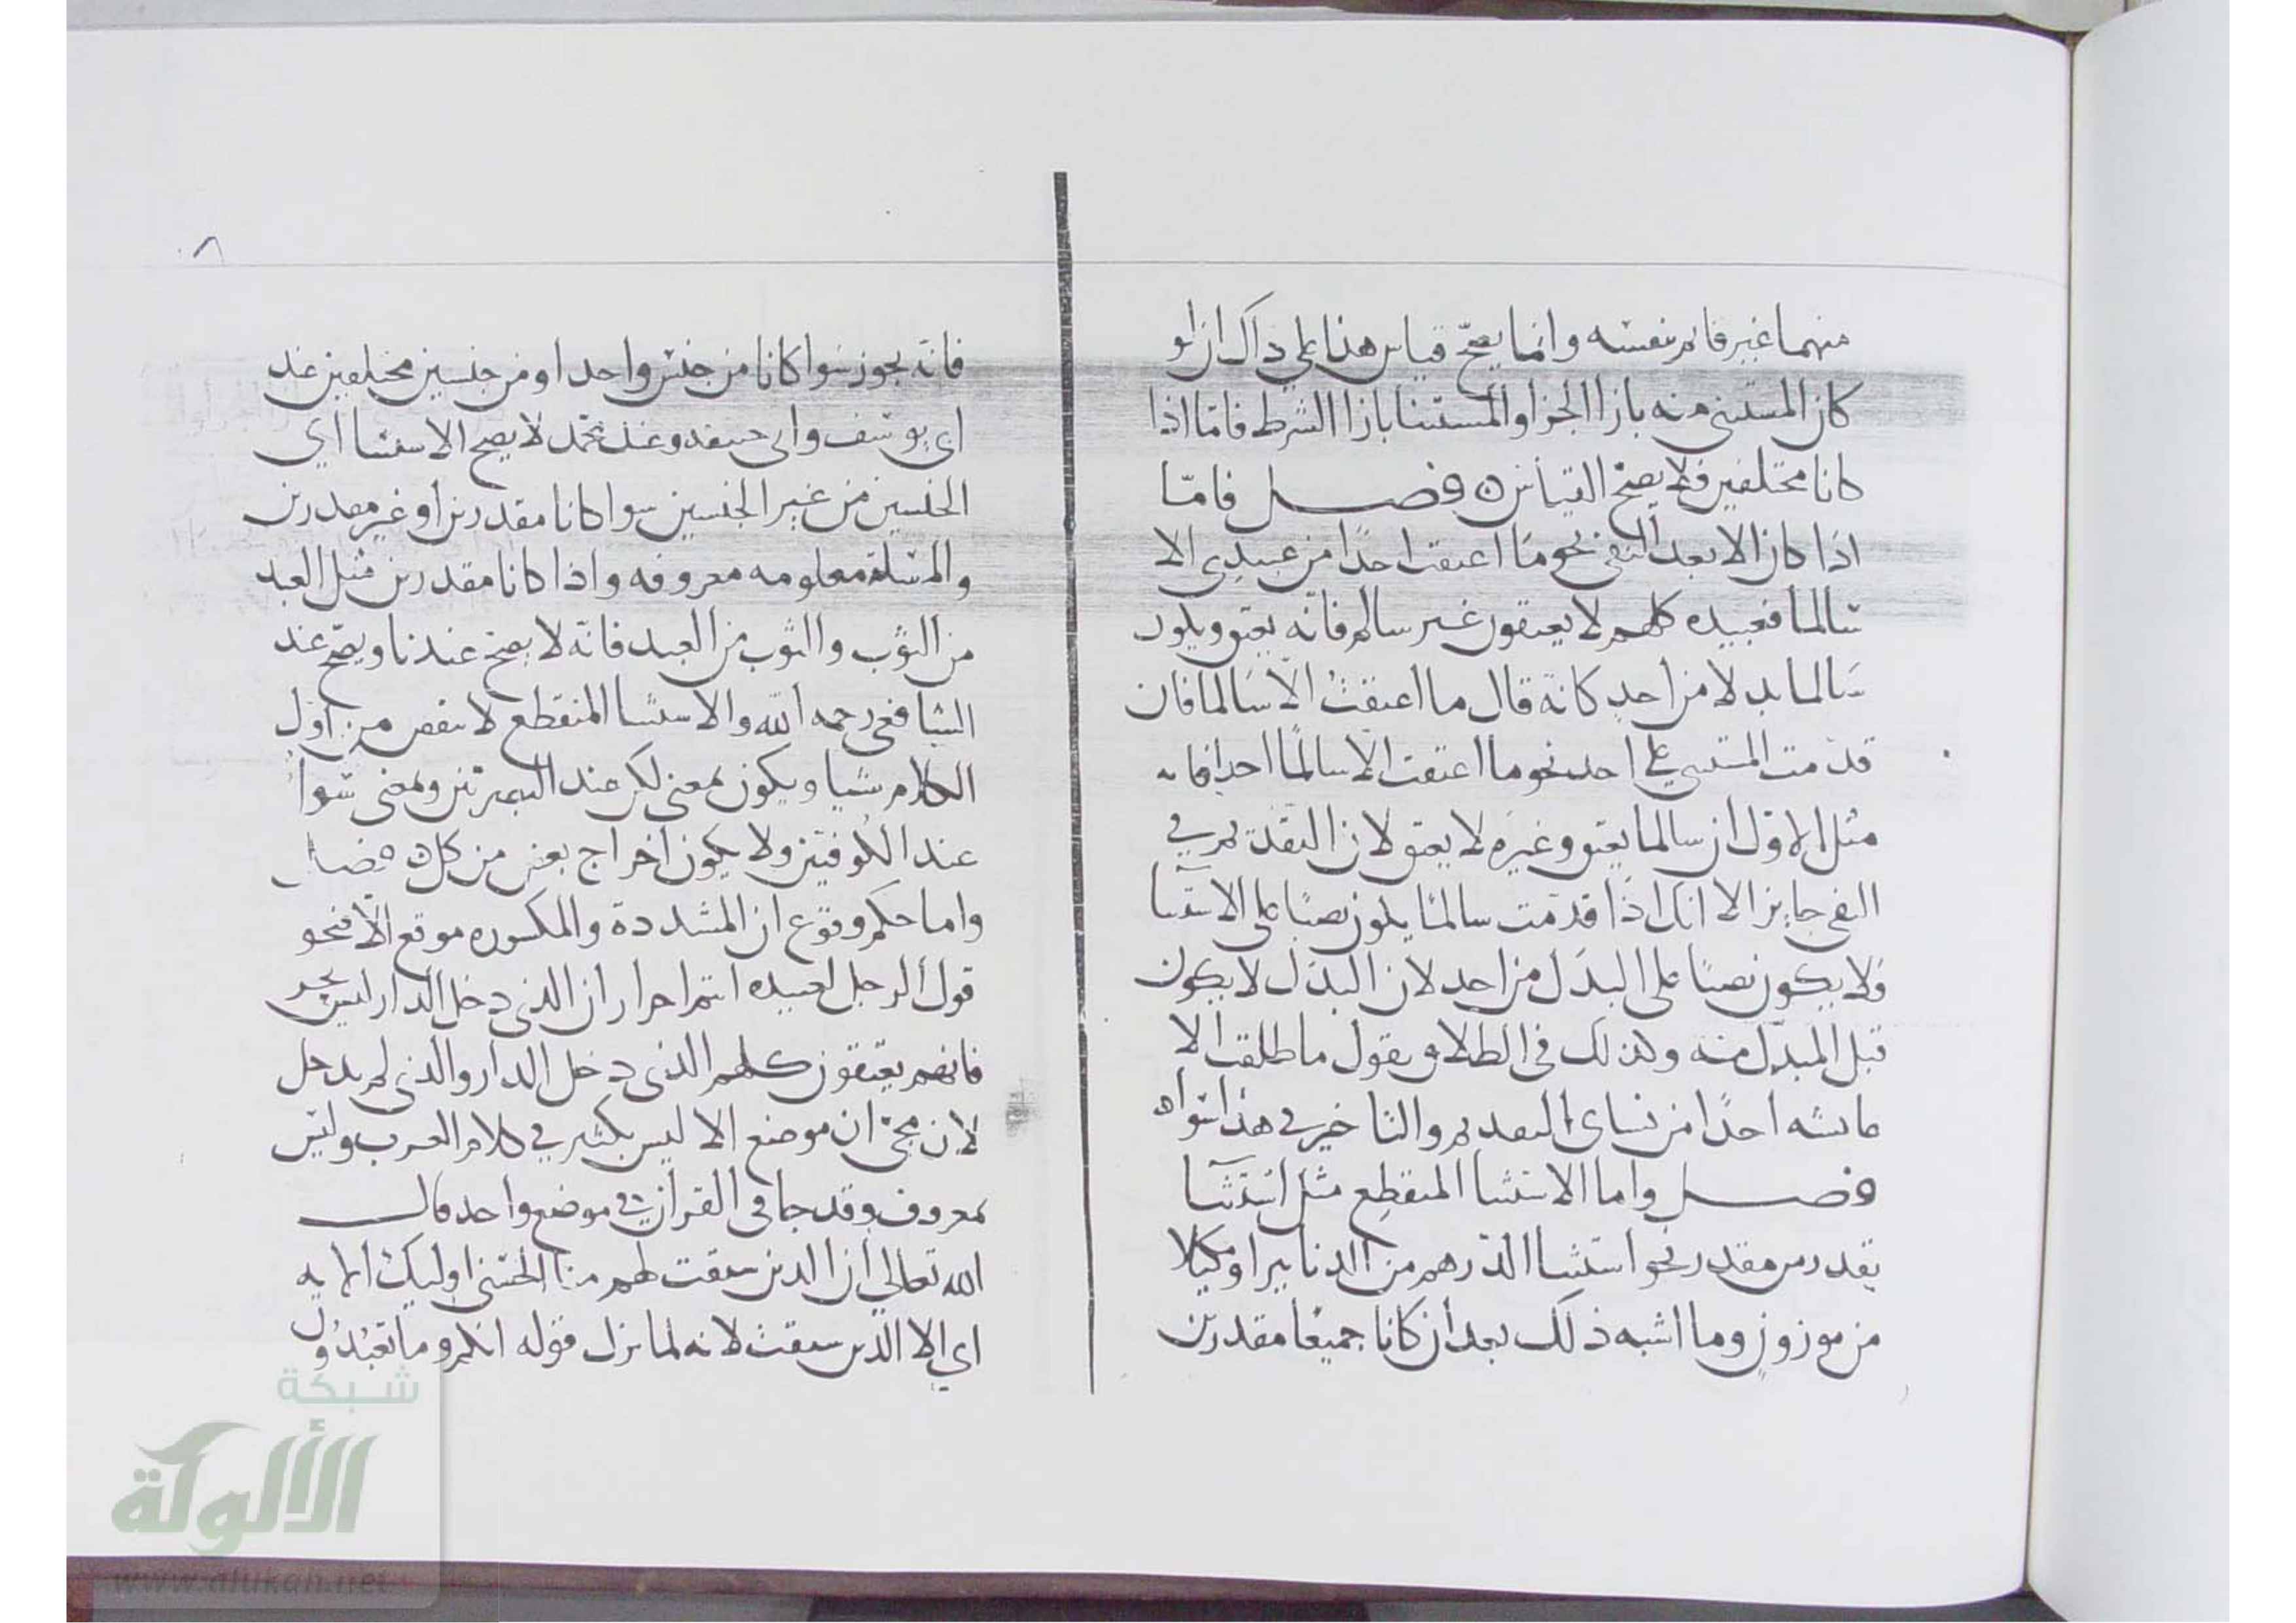 منهما غير قائم بنفسه وانما يصح قياس هذا علي ذاك ان لو
كان المستثنى منه بازا الجزا والمستثنا بازا الشرط فامّا اذا
كانا مختلفين فلا يصح القياس ن فصل فامّا
اذا كان الا بعد النفي نحو ما اعتقت احدًا من عبيدي الا
سالما فعبيده كلهم لا يعتقون غير سالم فانه يعتق ويكون
سالما بدلا من احدٍ كانه قال ما اعتقتُ الّا سالما فان
قدّمت المستثنى علي احد نحو ما اعتقت الا سالمًا احدا فانه
مثل الاوّل ان سالما يعتق وغيره لا يعتق لان التقديم في
النفي جايز الا انك اذا قدّمت سالمًا يكون نصبًا على الاستثنا
ولا يكون نصبًا على البدل من احد لان البدل لا يكون
قبل المبدل منه وكذلك في الطلاق يقول ما طلقت الا
عايشه احدًا من نساي التقديم والتاخير في هذا سوا ه
فصل واما الاستثنا المنقطع مثل استثنا
مقدر من مقدر نحو استثنا الدّرهم من الدنانير او مكيلا
من موزونٍ وما اشبه ذلك بعد ان كانا جميعًا مقدرين
٨
فانه يجوز سوا كانا من جنس واحد او من جنسين مختلفين عند
ابي يوسف وابي حنيفه وعند محمد لا يصح الاستثنا اي
الجنسين من غير الجنسين سوا كانا مقدرين او غير مقدرين
والمسئلة معلومه معروفه واذا كانا مقدرين مثل العبد
من الثوب والثوب من العبد فانه لا يصح عندنا ويصح عند
الشافعي رحمه الله والاستثنا المنقطع لا ينقص من اول
الكلام شيا ويكون بمعنى لكن عند البصريين وبمعنى سوا
عند الكوفيين ولا يكون اخراج بعض من كل ن فصل
واما حكم وقوع ان المشددة والمكسوره موقع الّا فنحو
قول الرجل لعبيده انتم احرار ان الذي دخل الدار ليس بحر
فانهم يعتقون كلهم الذي دخل الدار والذي لم يدخل
لان مجئ ان موضع الا ليس بكثير في كلام العرب وليس
بمعروف وقد جا في القران في موضع واحد قال
الله تعالي ان الذين سبقت لهم منا الحسنى اوليك الايه
اي الا الذين سبقت لانه لما نزل قوله انكم وما تعبدُون
شبكة
الألوكة
www.alukah.net